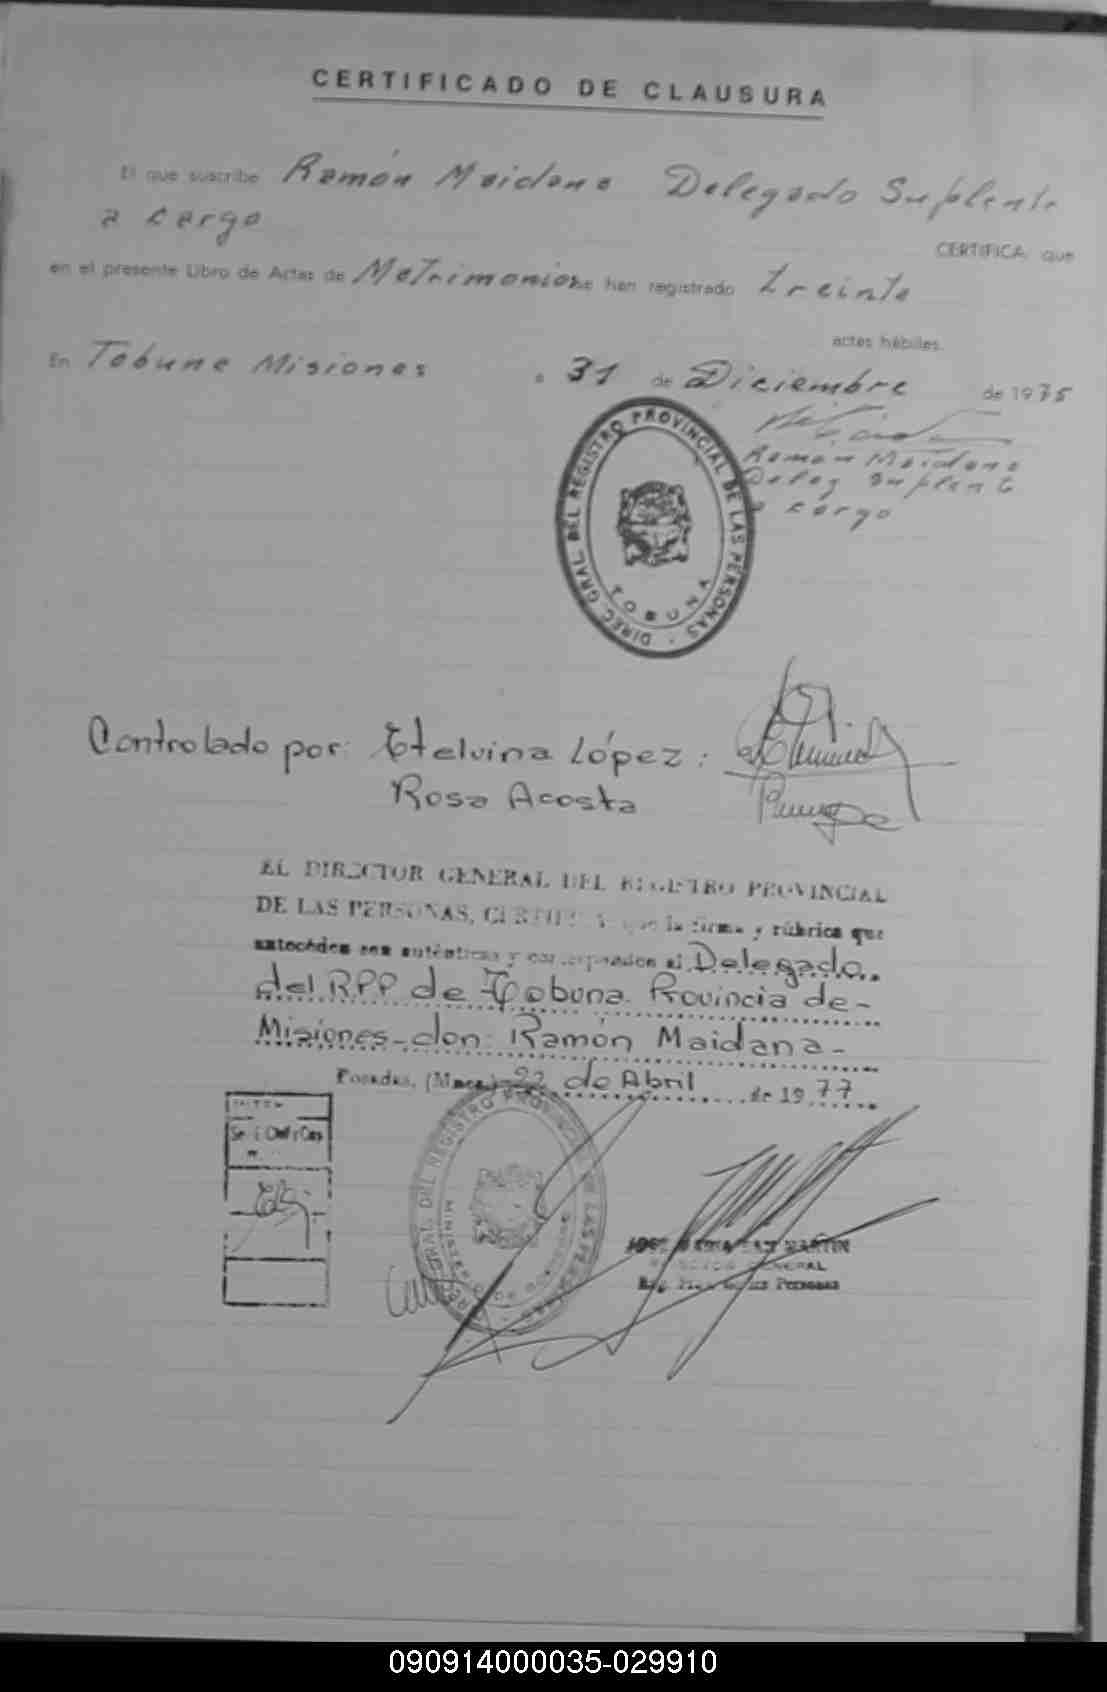 CERTIFICADO DE CLAUSURA
El que suscribe Ramón Maidana Delegado Suplente
a cargo
CERTIFICA: que
en el presente Libro de Actas de Matrimonios se han registrado treinta
actas hábiles.
En Tobuna Misiones a 31 de Diciembre de 1975
Ramon Maidana
Deleg Suplente
a cargo
DIREC. GRAL. DEL REGISTRO PROVINCIAL DE LAS PERSONAS
TOBUNA
Controlado por: Etelvina López:
Rosa Acosta
EL DIRECTOR GENERAL DEL REGISTRO PROVINCIAL
DE LAS PERSONAS, CERTIFICA que la firma y rúbrica que
anteceden son auténticas y corresponden al Delegado
del RPP de Tobuna. Provincia de-
Misiones- don: Ramón Maidana-
Posadas, (Mnes.) 22 de Abril de 1977
JOSE MARIA SAN MARTIN
DIRECTOR GENERAL
Reg. Prov. de las Personas
090914000035-029910